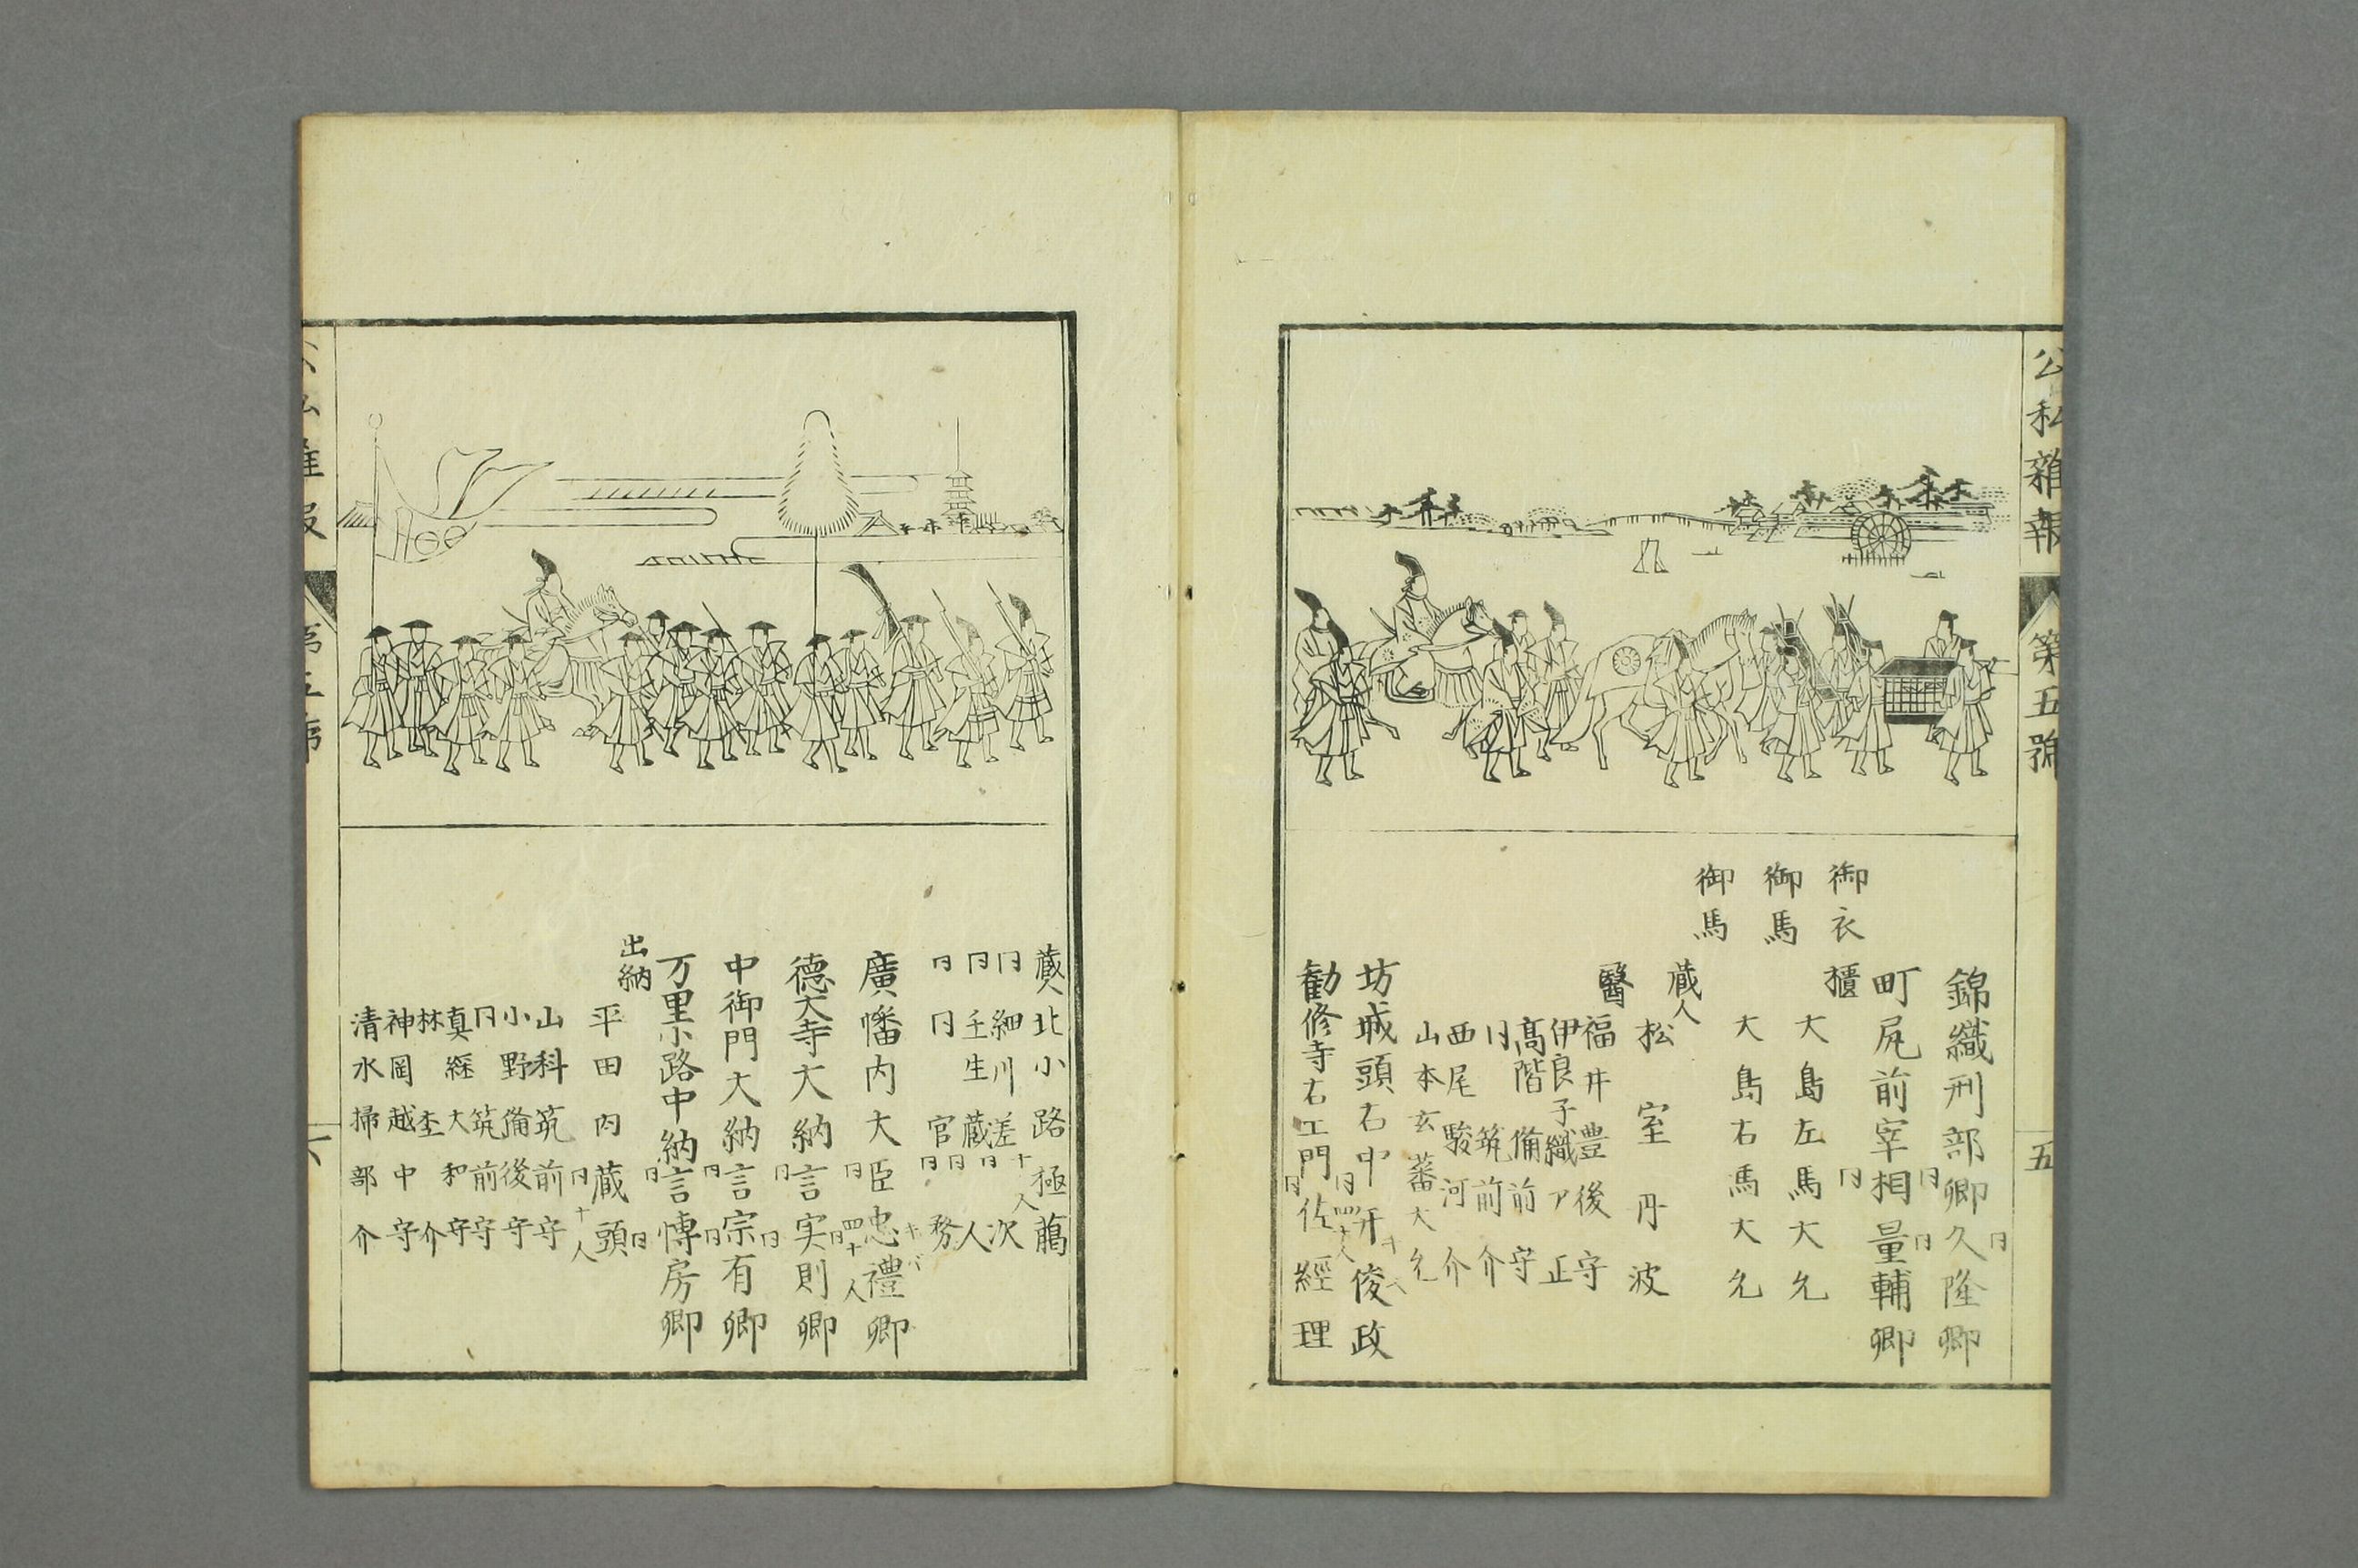 公私雑報
第五號
五
錦織刑部卿久隆卿
同
同
町尻前宰相量輔卿
同
同
御衣櫃
同
御馬 大島左馬大允
御馬 大島右馬大允
蔵人
松室丹波
醫
福井豊後守
伊良子織ア正
高階備前守
同 筑前介
西尾駿河介
山本玄蕃大允
坊城頭右中弁俊政
同
四十人
勧修寺右エ門佐經理
同
蔵人北小路極﨟
同細川差次
十人
同壬生蔵人
同
同同官務
同
同
廣幡内大臣忠禮卿
同
四十人
德大寺大納言実則卿
同
同
中御門大納言宗有卿
同
同
万里小路中納言博房卿
同
同
出納
平田内蔵頭
同
十人
山科筑前守
小野備後守
同 筑前守
真継大和守
林 杢介
神岡越中守
清水掃部介